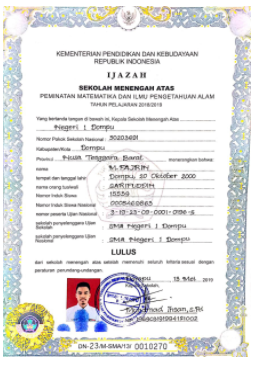 KEMENTERIAN PENDIDIKAN DAN KEBUDAYAAN
REPUBLIK INDONESIA
IJAZAH
SEKOLAH MENENGAH ATAS
PEMINATAN MATEMATIKA DAN ILMU PENGETAHUAN ALAM
TAHUN PELAJARAN 2018/2019
Yang bertanda tangan di bawah ini, Kepala Sekolah Menengah Atas
Negeri 1 Dompu
Nomor Pokok Sekolah Nasional : 50203691
Kabupaten/Kota Dompu
Provinsi Nusa Tenggara Barat menerangkan bahwa:
nama M. FAJRIN
tempat dan tanggal lahir Dompu, 20 Oktober 2000
nama orang tua/wali SARIFUDDIN
Nomor Induk Siswa 15539
Nomor Induk Siswa Nasional
nomor peserta Ujian Nasional 3-19-23-09-0001-0196-5
sekolah penyelenggara Ujian Sekolah SMA Negeri 1 Dompu
sekolah penyelenggara Ujian Nasional SMA Negeri 1 Dompu
LULUS
dari sekolah menengah atas setelah memenuhi seluruh kriteria sesuai dengan
peraturan perundang-undangan.
13 Mei 2019
DN-23/M-SMA/13/ 0010270